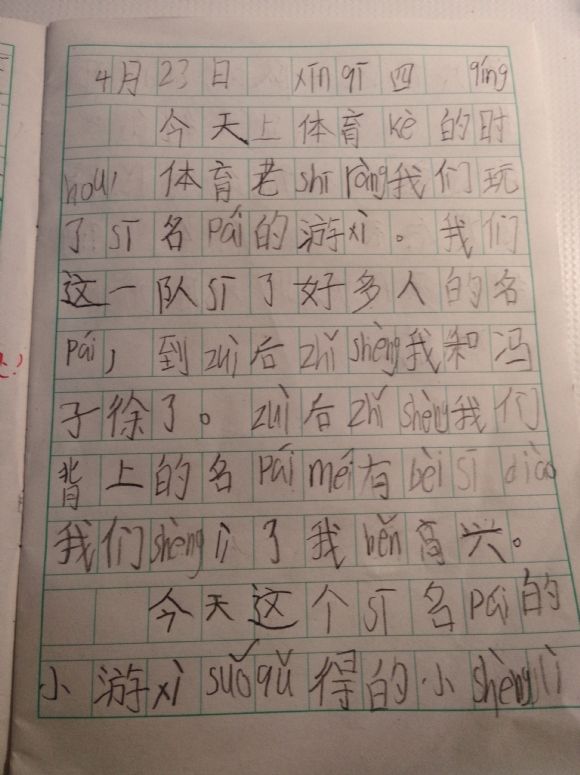 4月23日 xīn qī 四 qíng
今天上体育kè的时
hou，体育老shī ràng我们玩
了sī名pái的游xì。我们
这一队sī了好多人的名
pái，到zuì后zhǐ shèng我和冯
子徐了。zuì后zhǐ shèng我们
背上的名pái méi有bèi sī diào
我们shèng lì了我běn高兴。
今天这个sī名pái的
小游xì suǒ qǔ得的小shèng lì